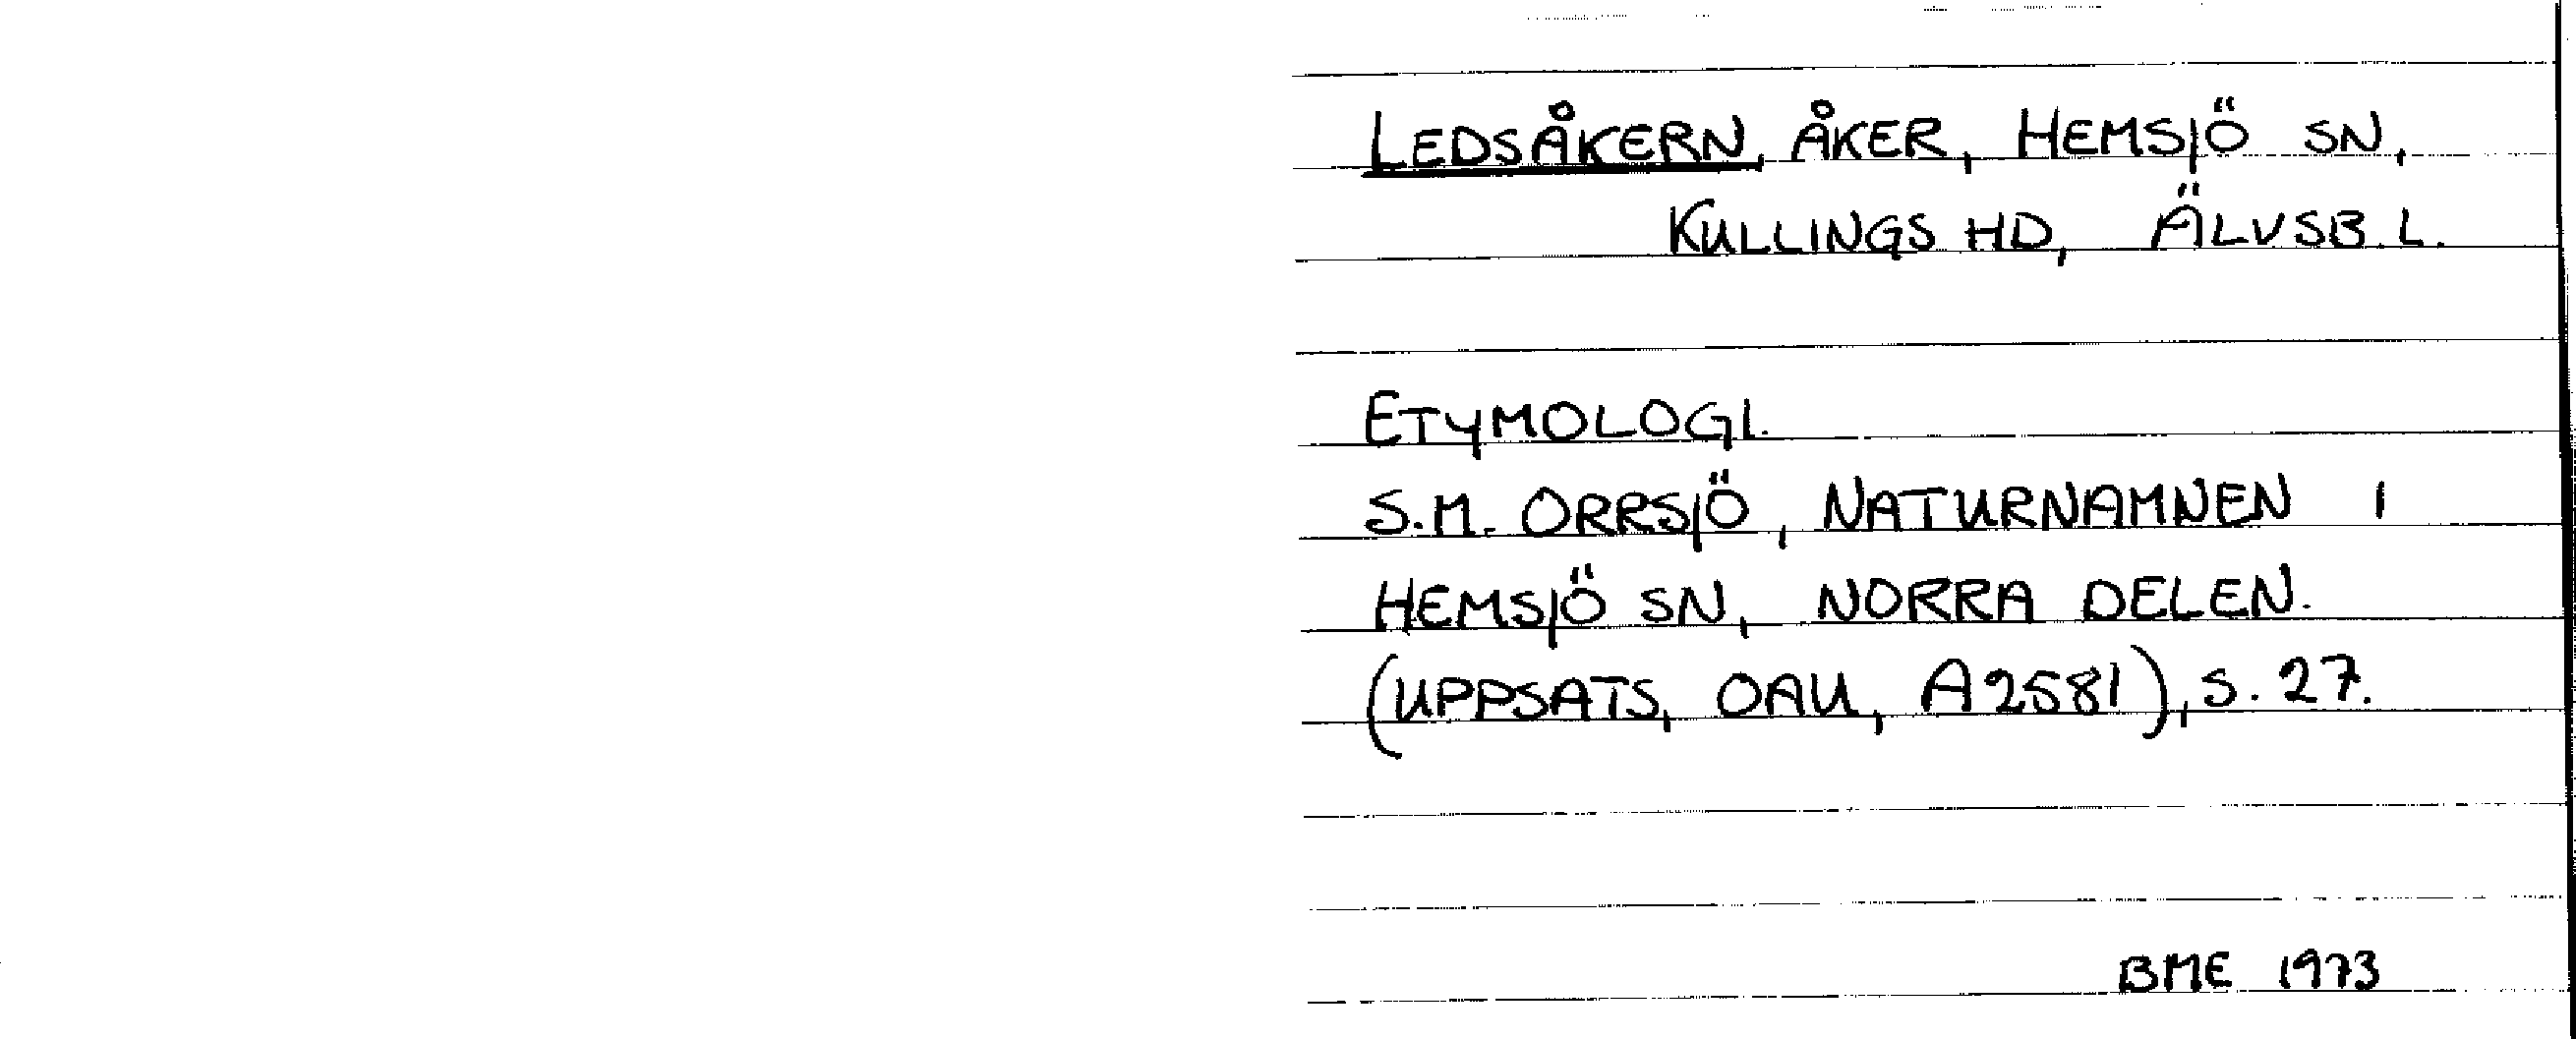 LEDSÅKERN, ÅKER, HEMSJÖ SN,
KULLINGS HD, ÄLVSB. L.
ETYMOLOGI.
S.M. ORRSJÖ, NATURNAMNEN I
HEMSJÖ SN, NORRA DELEN.
(UPPSATS, OAU, A2581), S. 27.
BME 1973